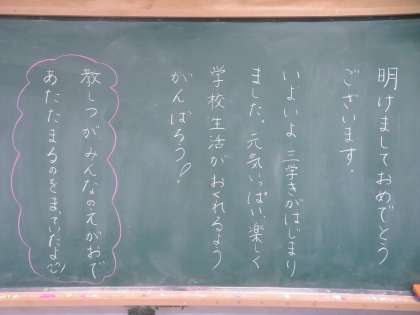 明けましておめでとう
ございます。
いよいよ 三学きがはじまり
ました。元気いっぱい、楽しく
学校生活がおくれるよう
がんばろう!
教しつが みんなの えがおで
あたたまるのをまっていたよ